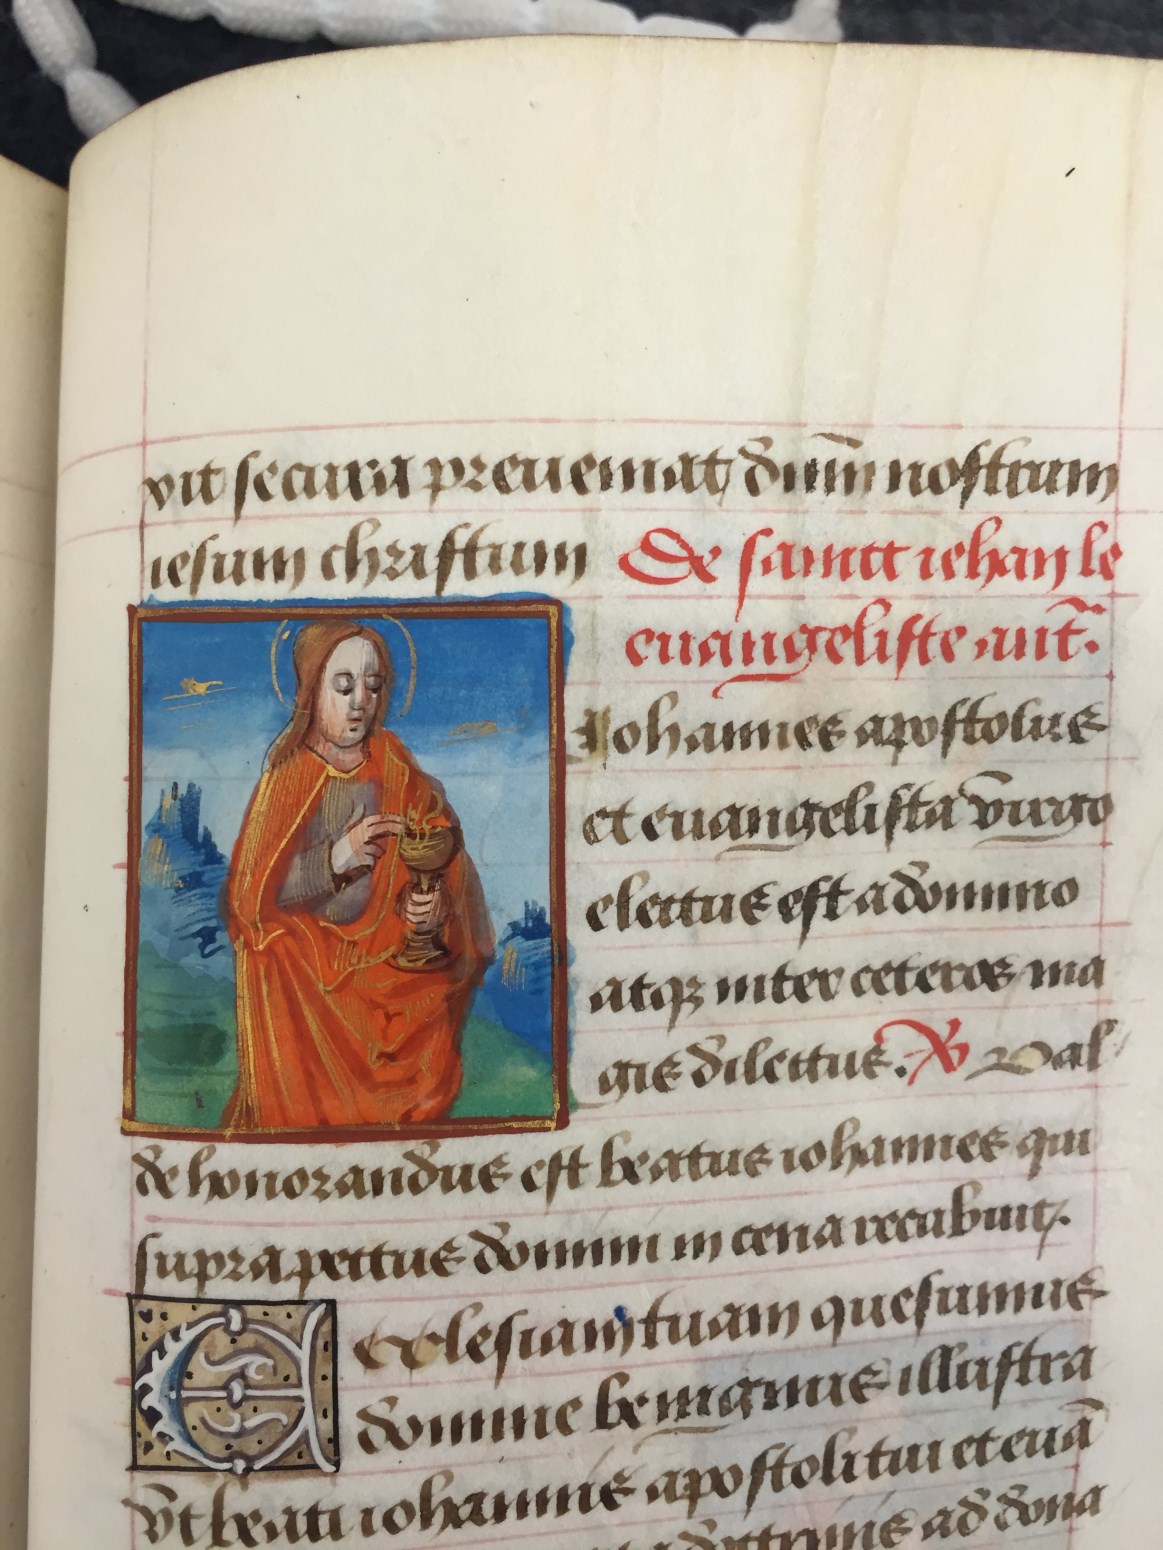 vit secura preueniat dūm nostrum
iesum christum De sainct iehan le
euangeliste ant̄.
Iohannes apostolus
et euangelista v̄irgo
electus est a domino
atqꝫ inter ceteros ma
gis dilectus. ℣ Val
de honorandus est beatus iohannes qui
supra pectus domini in cena recubuit.
Ecclesiam tuam quesumus
domine benignus illustra
vt beati iohannis apostoli tui et euā
doctrinis ad dona